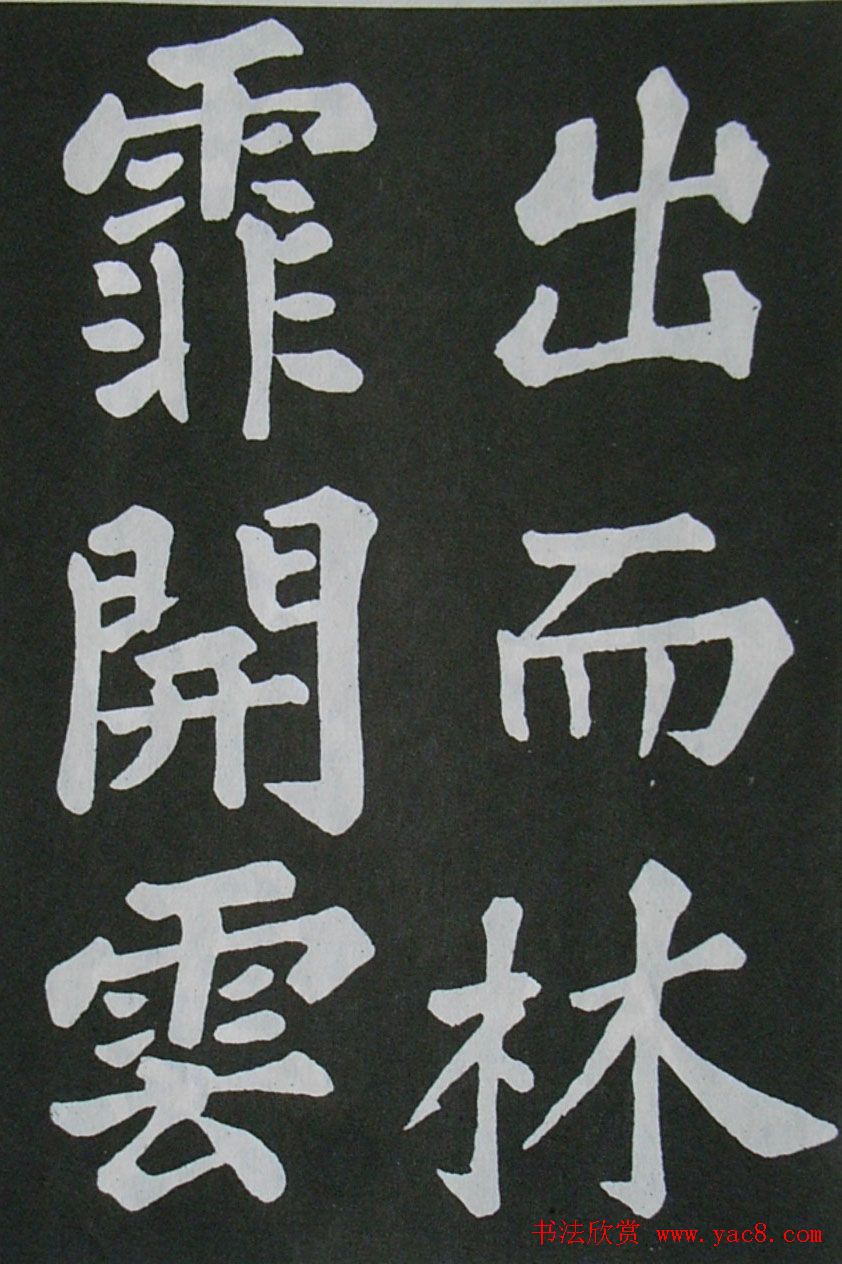 出而林
霏開雲
书法欣赏 www.yac8.com